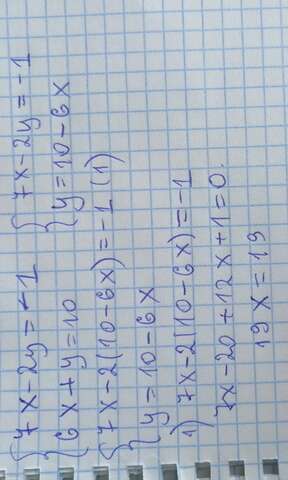 {7x-2y=-1 {7x-2y=-1
{6x+y=10 {y=10-6x
{7x-2(10-6x)=-1 (1)
{y=10-6x
1) 7x-2(10-6x)=-1
7x-20+12x+1=0.
19x=19